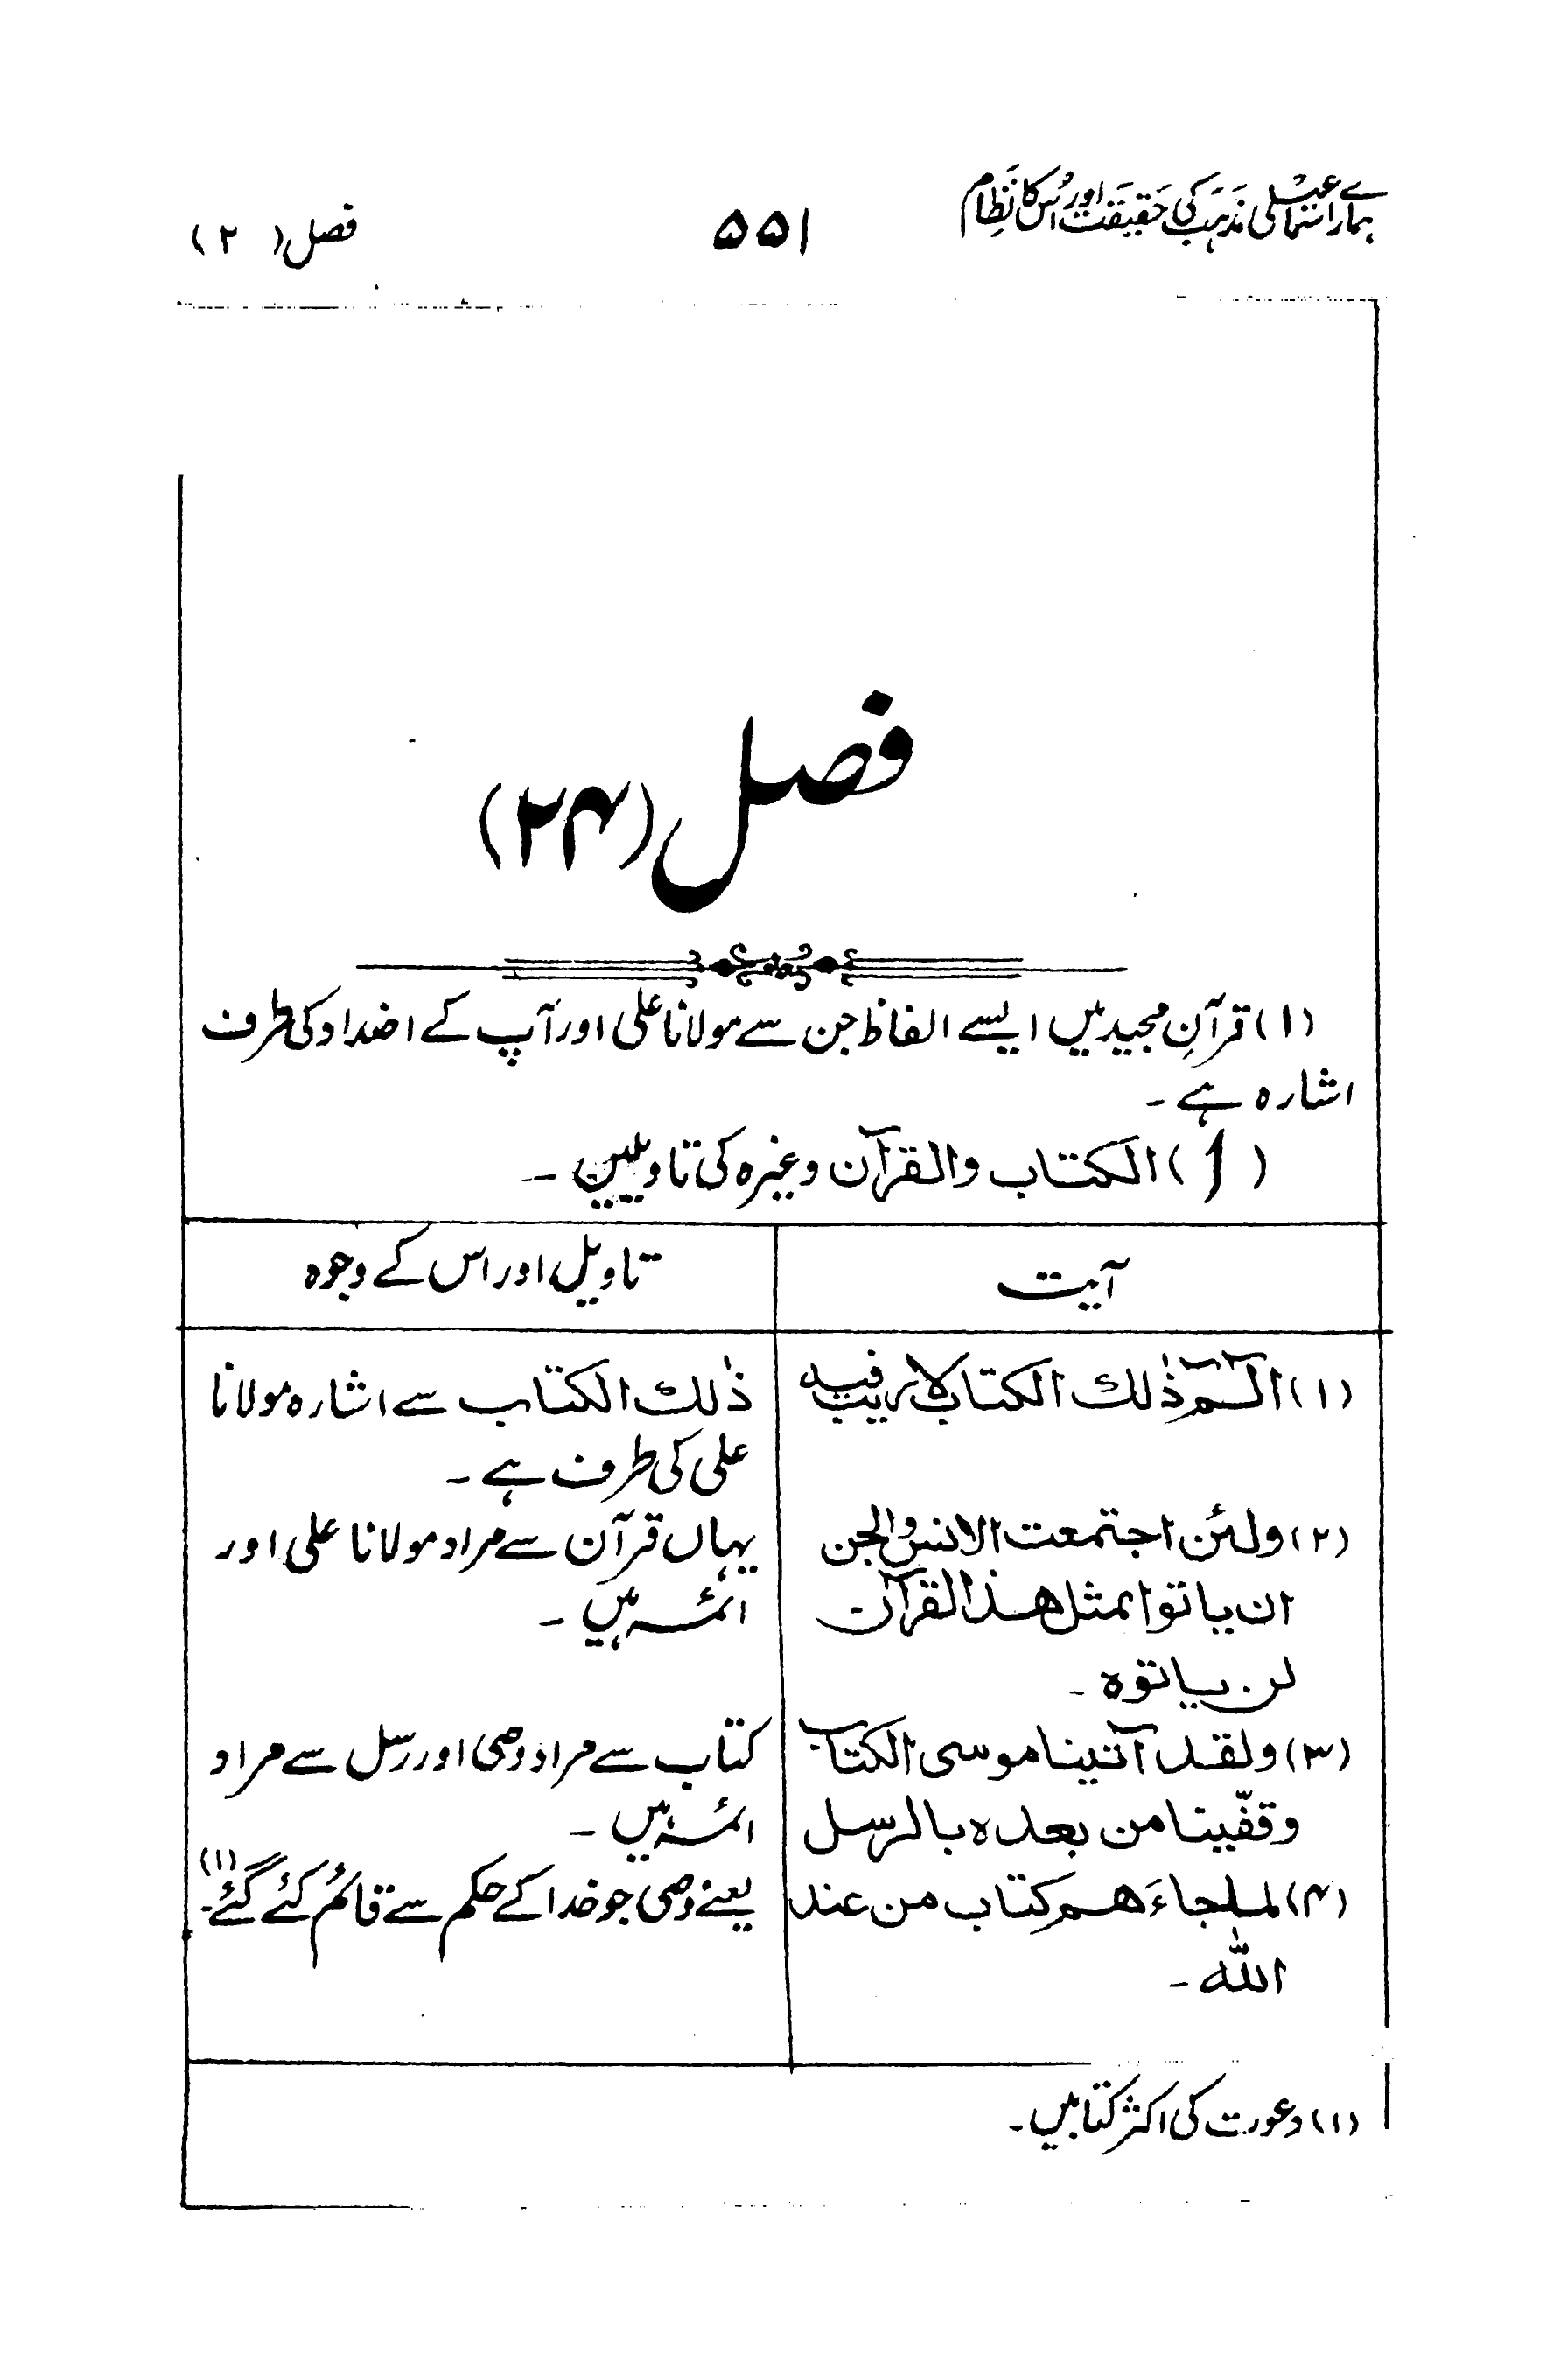 ہمارے اسمٰعیلی مذہب کی حقیقت اور اُس کا نظام ۵۵۱ فصل (۲)
فصل (۲۴)
(۱) قرآنِ مجید میں ایسے الفاظ جن سے مولانا علی اور آپ کے اضداد کی طرف
اشارہ ہے ۔
(أ) الکتاب والقرآن وغیرہ کی تاویلیں ۔
آیت
تاویل اور اس کے وجوہ
(۱) الٓـمّٓ ذٰلك الکتاب لا ریب فیه
ذٰلك الکتاب سے اشارہ مولانا
علی کی طرف ہے ۔
(۲) ولئن اجتمعت الانس والجن
ان یاتوا بمثل هذا القرآن
لن یاتوه ۔
یہاں قرآن سے مراد مولانا علی اور
ائمہ ہیں ۔
(۳) ولقد آتینا موسی الکتاب
وقفّینا من بعده بالرسل
کتاب سے مراد وصی اور رسل سے مراد
ائمہ ہیں ۔
(۴) لما جاءَهم کتاب من عند
اللّٰه ۔
یعنے وصی جو خدا کے حکم سے قائم کئے گئے ۔(۱)
(۱) دعوت کی اکثر کتابیں ۔